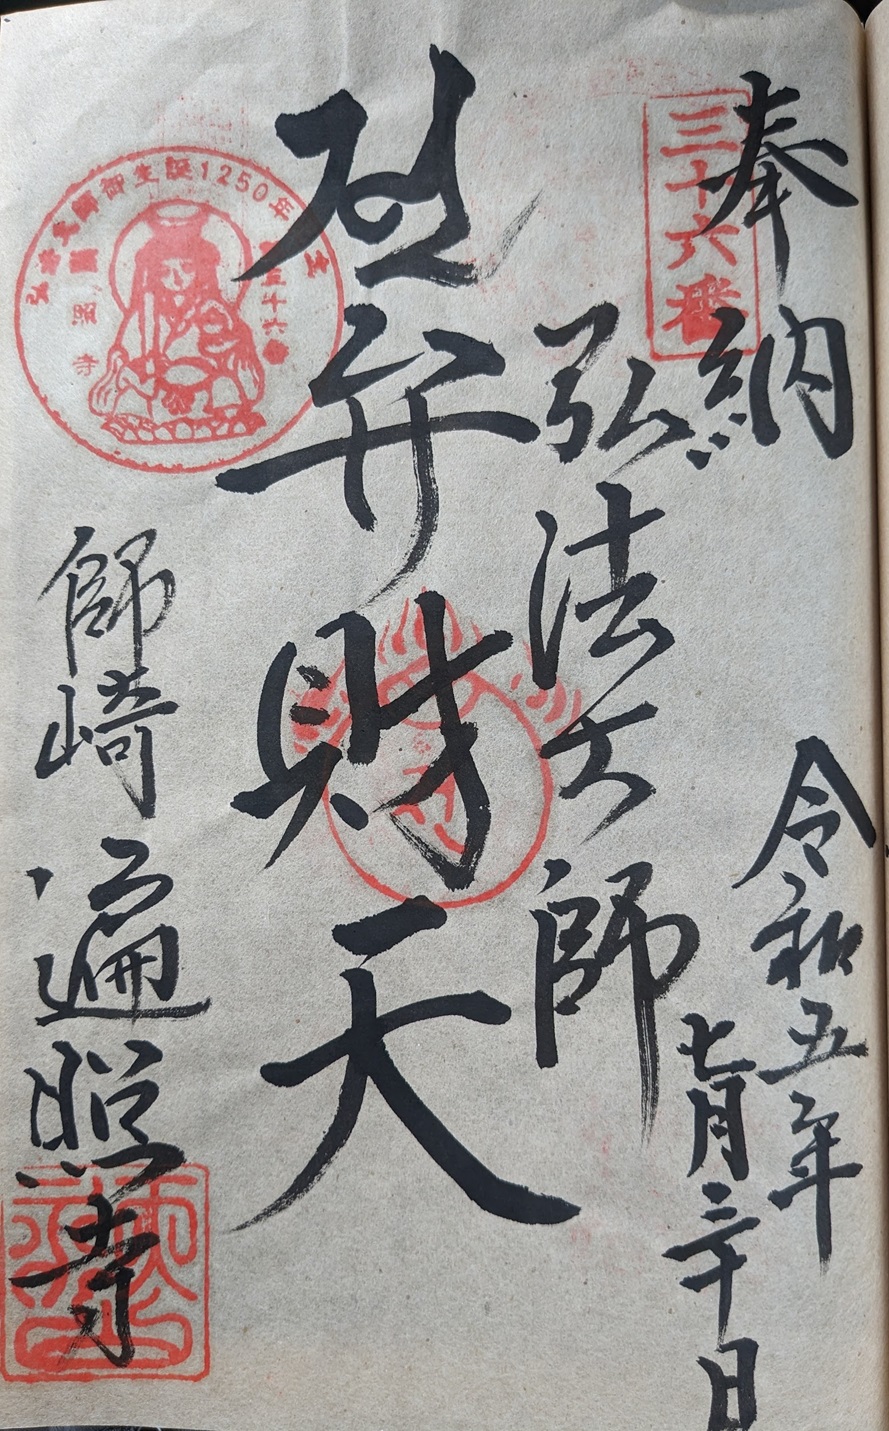 奉納
三十六番
令和五年
七月三十日
弘法大師
弁財天
弘法大師御生誕1250年
第三十六番
遍照寺
師崎
遍照寺